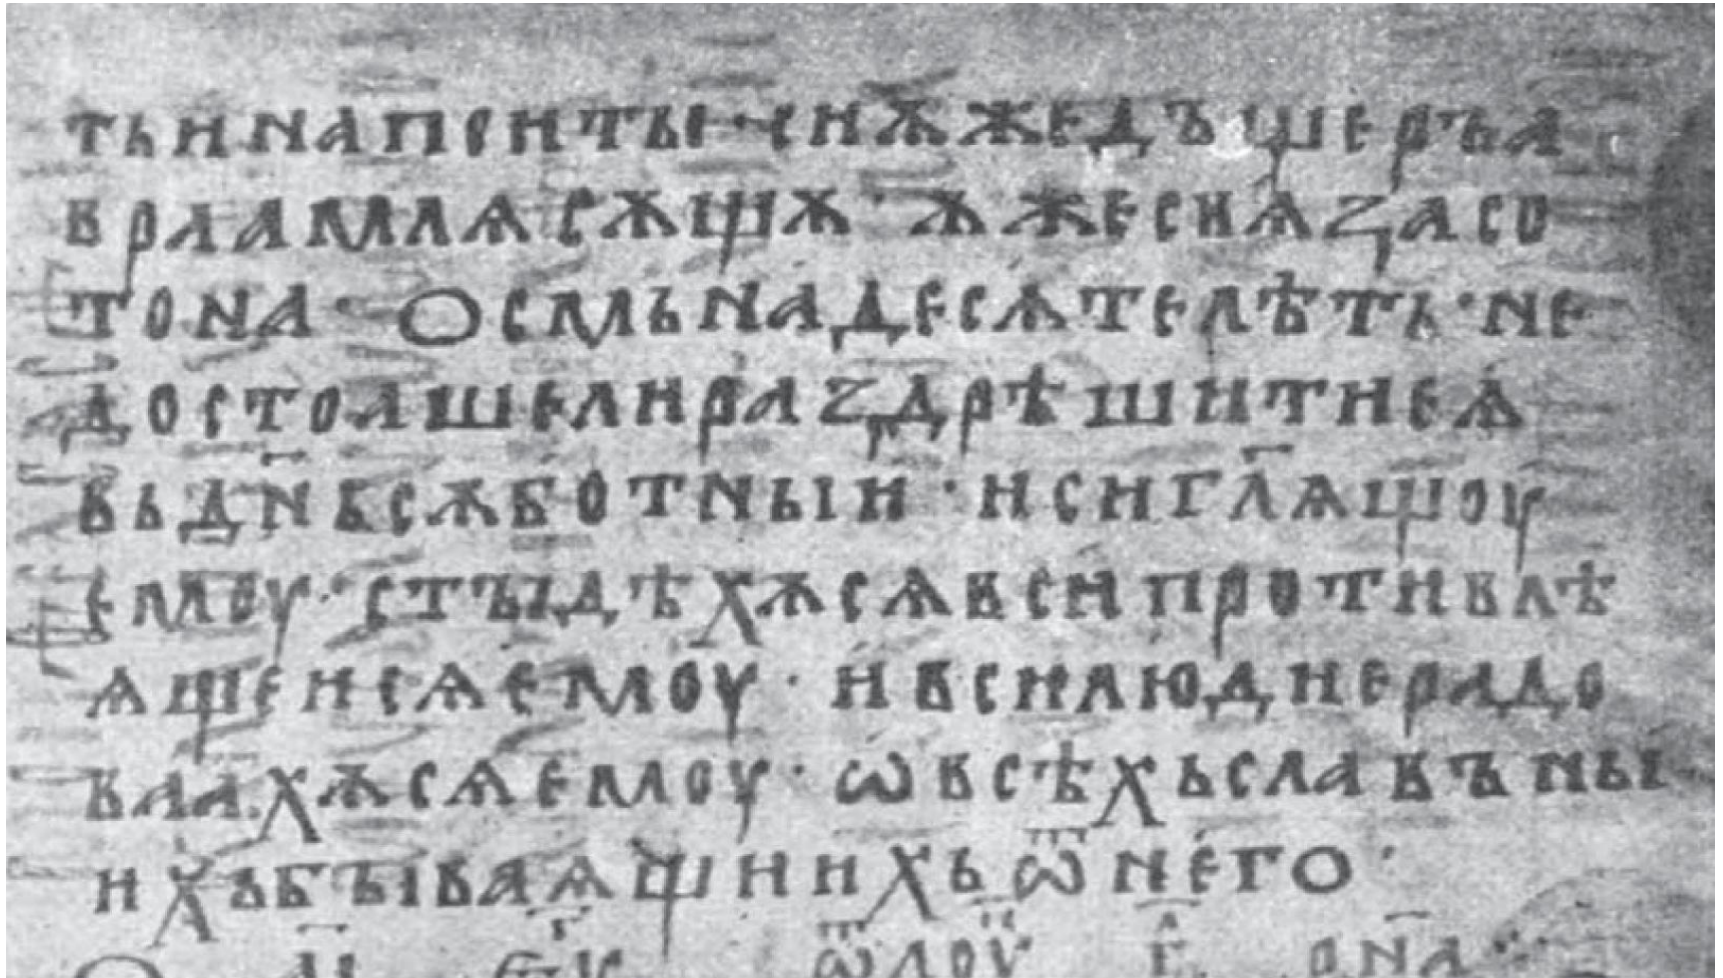 тьинапоитьі · сиѫжедъщеръа
враамлѧсѫщѫ · ѫжесиѧꙁасо
тона · Осмьнадесѧтелѣть · не
достоꙗшелираꙁдрѣшитиеѧ
вьдн҃ьсѫботныи · исигл҃ѧщоу
емоу · стъідѣхѫсѧвсипротивлѣ
ѧщеисѧемоу · ивсилюдиерадо
ваахѫсѧемоу · ѡвсѣхьславъны
ихъбъіваѧщиихьѿнего ·